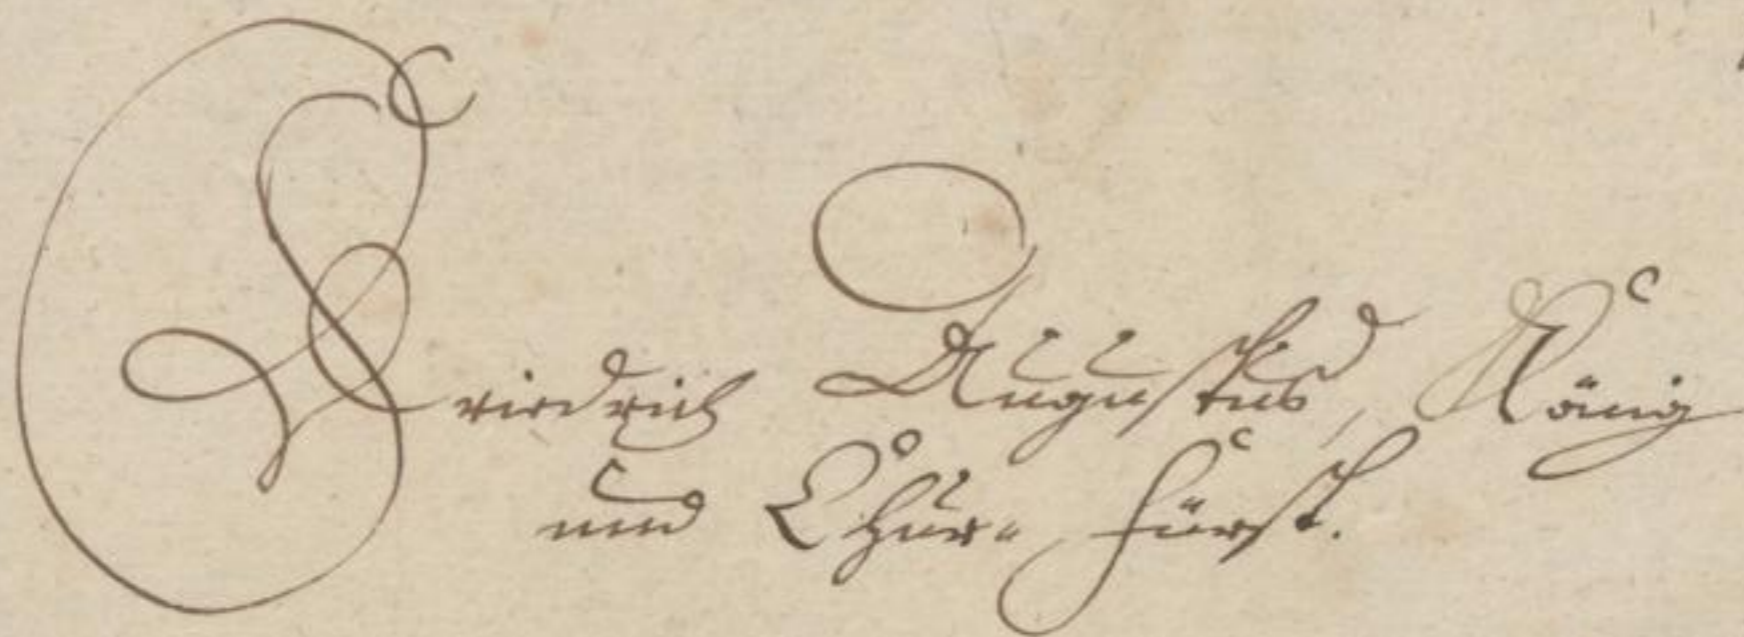 Friedrich Augustus, König
und Chur-Fürst.